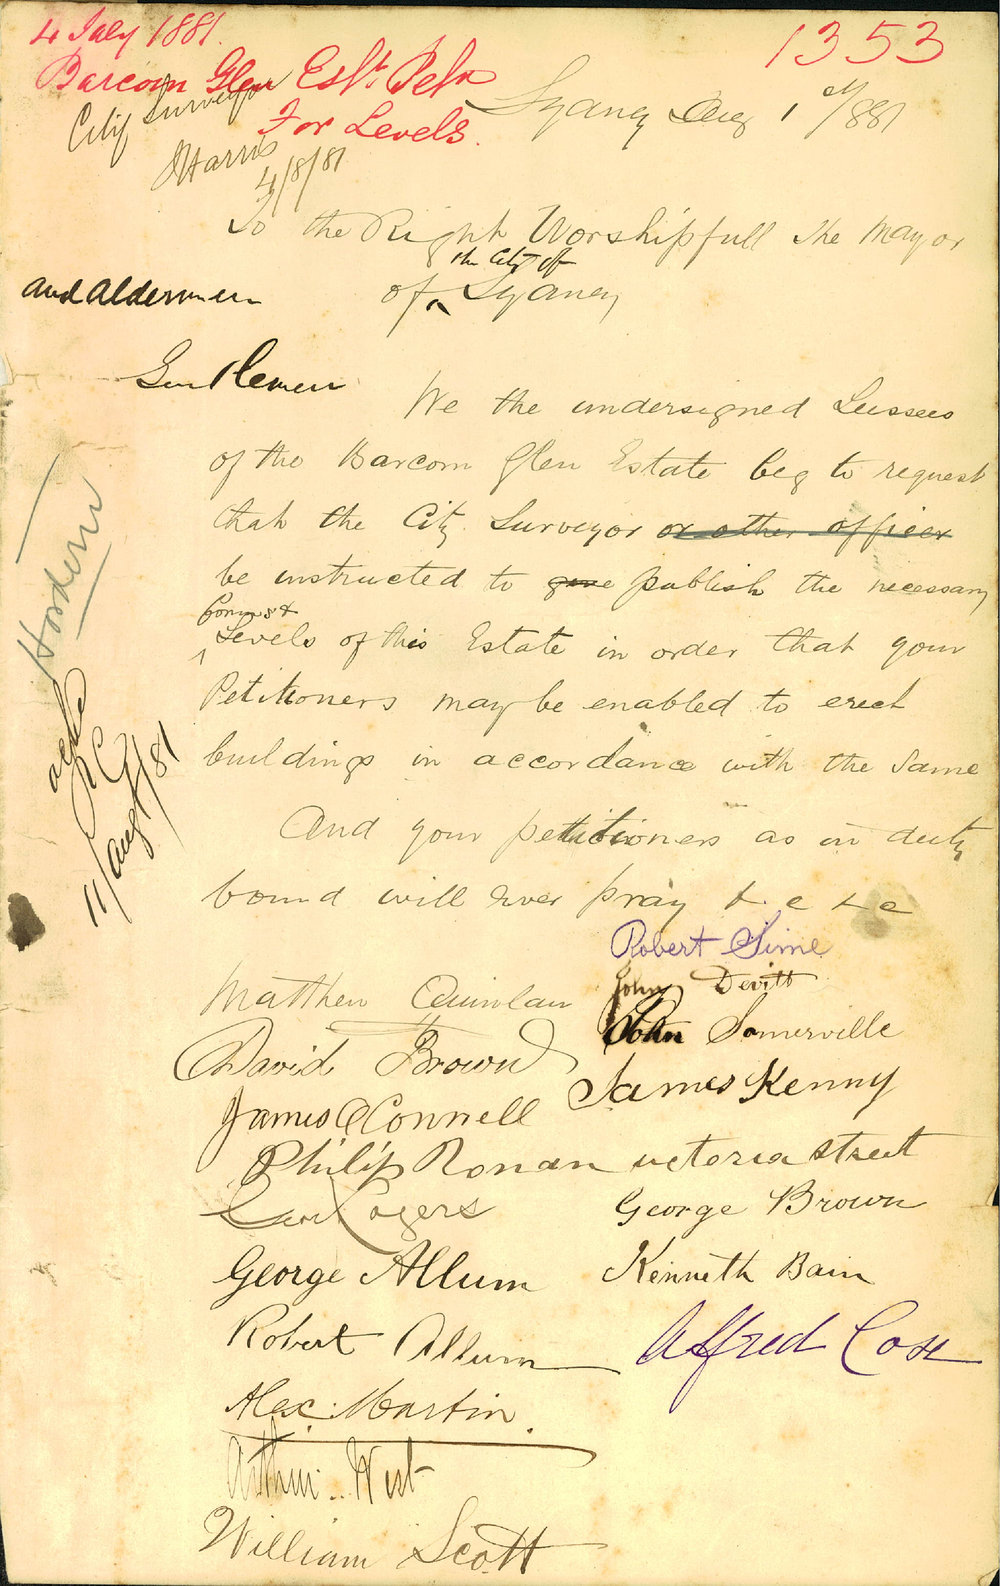 4 July 1881.
1353
Barcom Glen Est. Petn
For Levels.
City Surveyor
JHarris
4/8/81
Sydney Aug 1st/881
To the Right Worshipfull the Mayor
and aldermen of the City of Sydney
Gentlemen
We the undersigned Lessees
of the Barcom Glen Estate beg to request
that the City Surveyor or other officer
be instructed to give publish the necessary
Levels of this Estate in order that your
Petitioners may be enabled to erect
buildings in accordance with the Same
And your petitioners as in duty
bound will ever pray &c &c
Hordern
11/Aug/81
Robert Sime
Matthew Quinlan
John Devitt
John Somerville
David Brown
James Kenny
James O Connell
Philip Ronan victoria street
Rogers
George Brown
George Allum
Kenneth Bain
Robert Allum
Alfred Case
Alex. Martin.
Arthur. West
William Scott